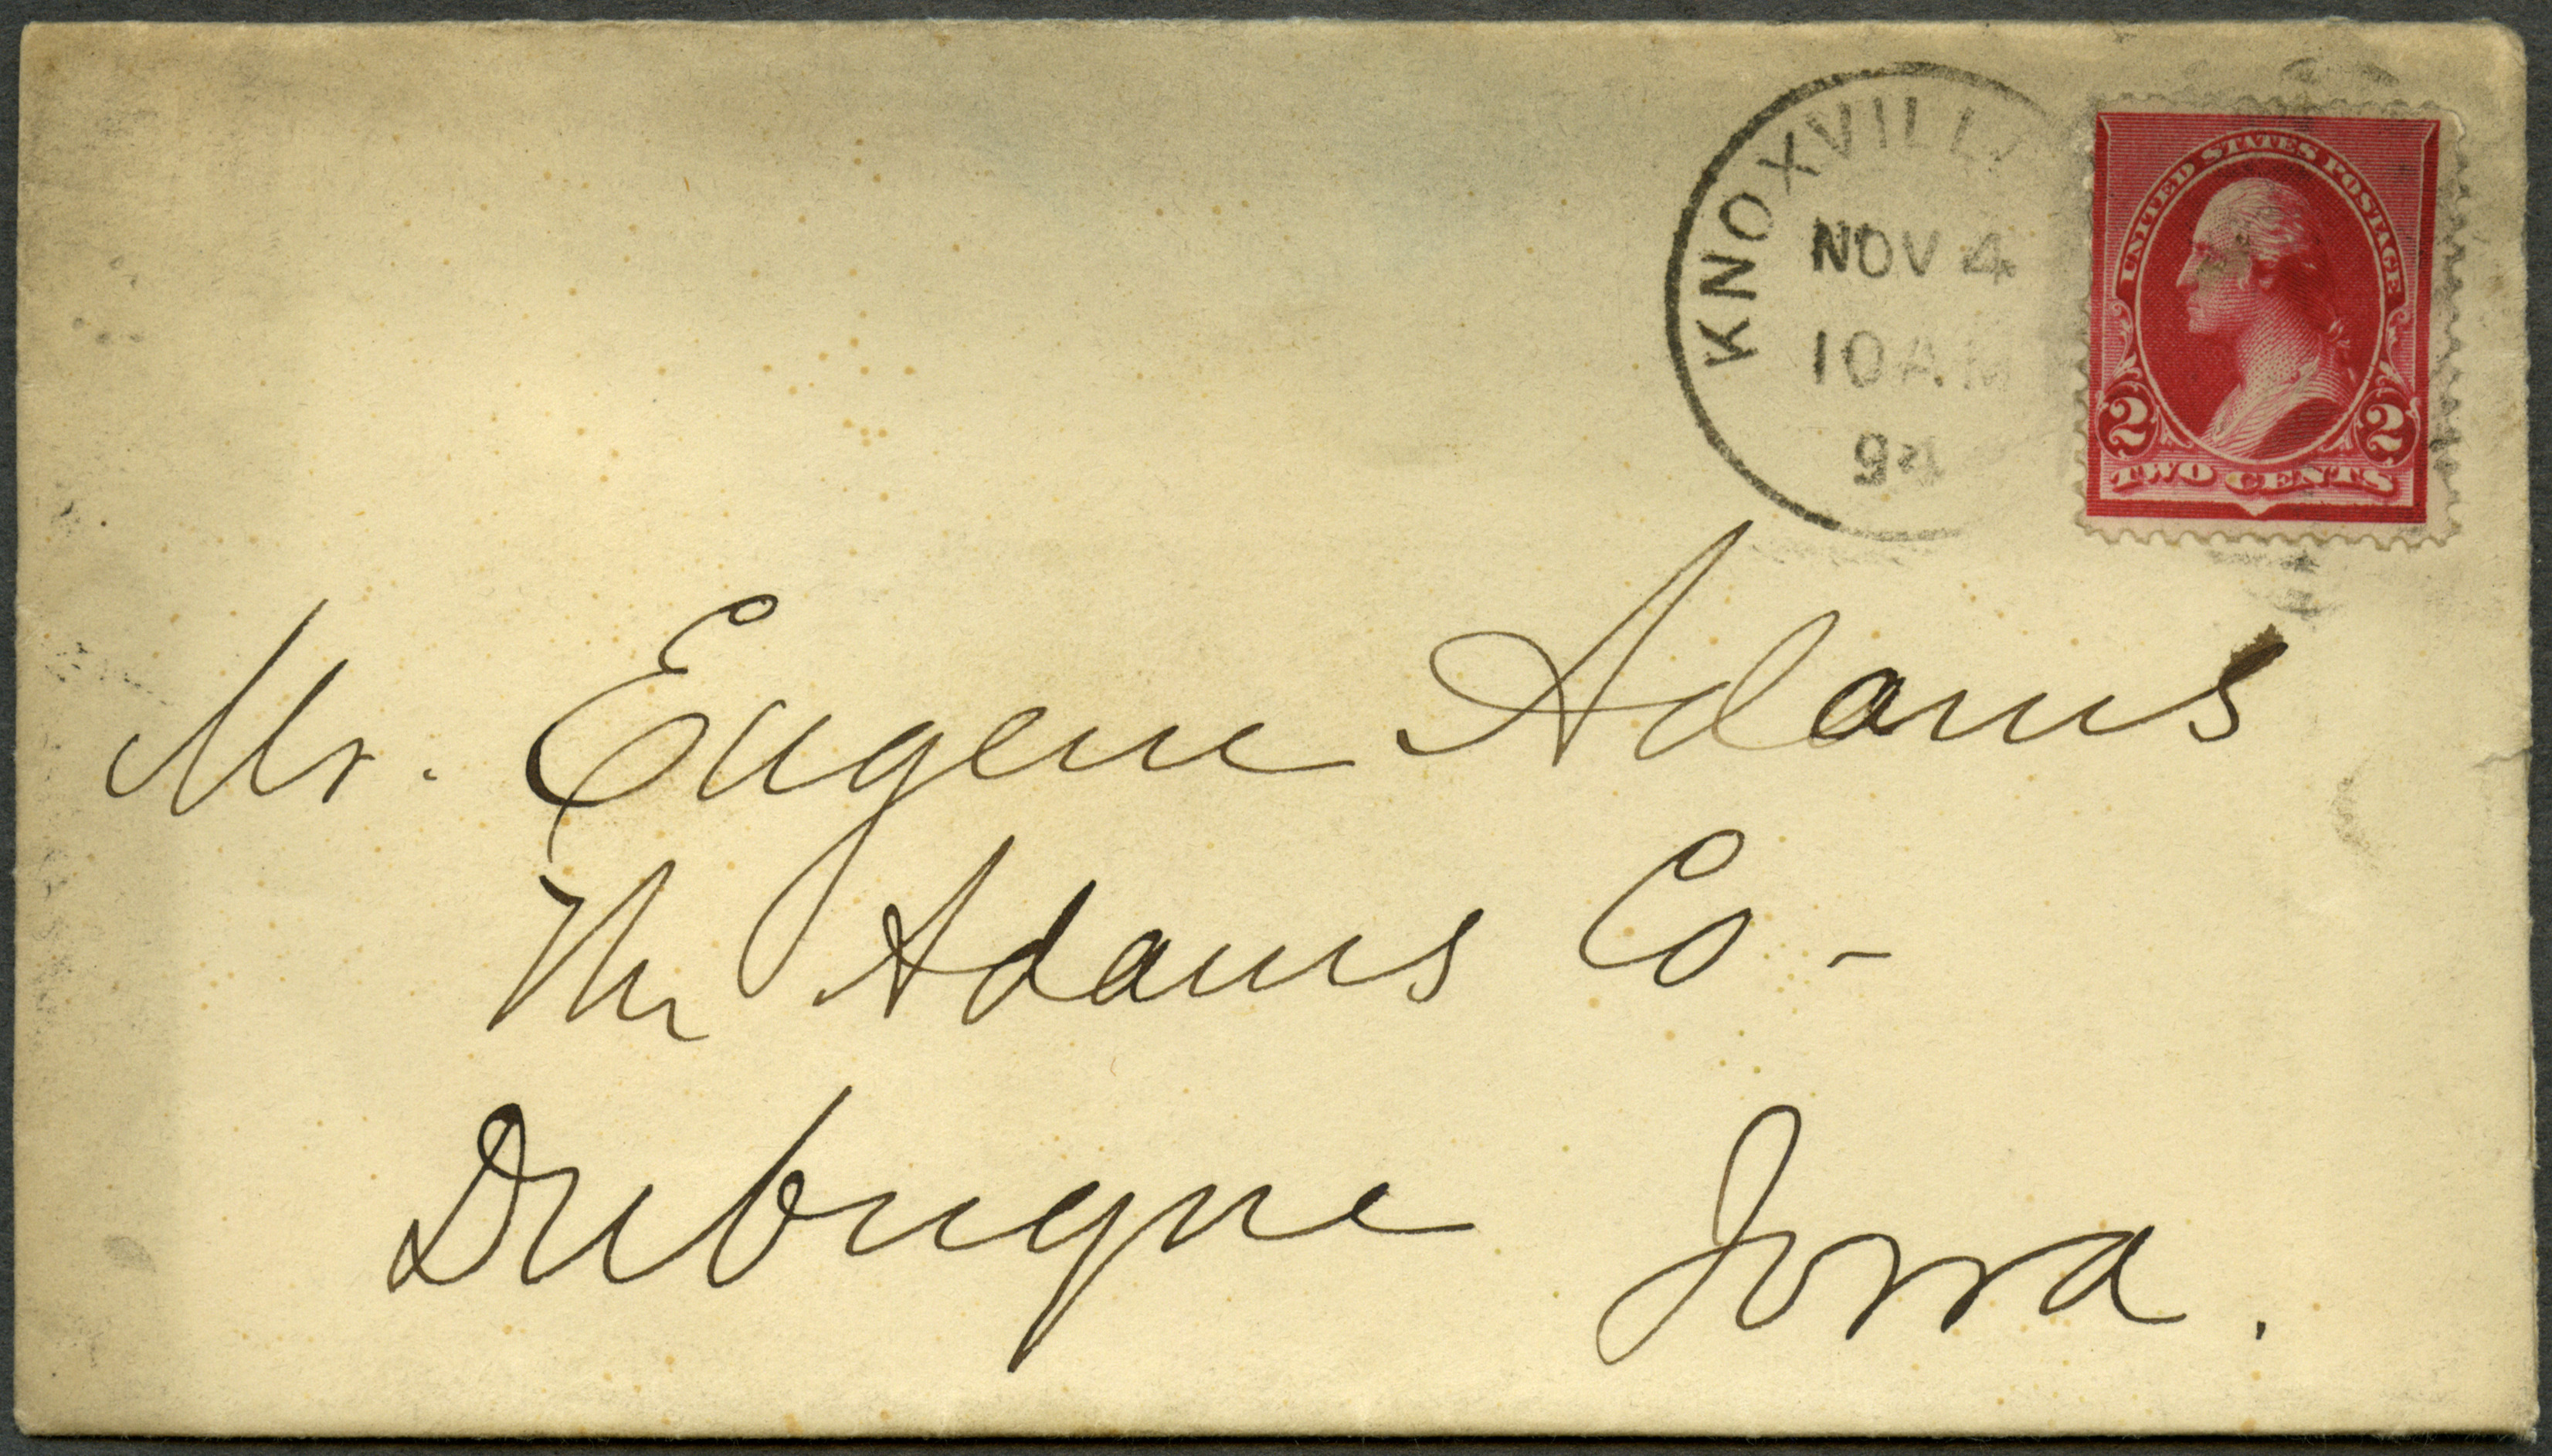 KNOXVILL
NOV 4
10 AM
94
UNITED STATES POSTAGE
2 2
TWO CENTS
Mr. Eugene Adams
The Adams Co -
Dubuque Iowa.